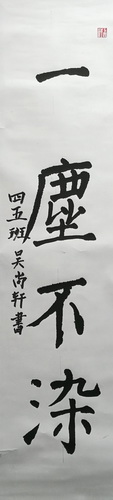 一塵不染
四五班 吴尚軒書